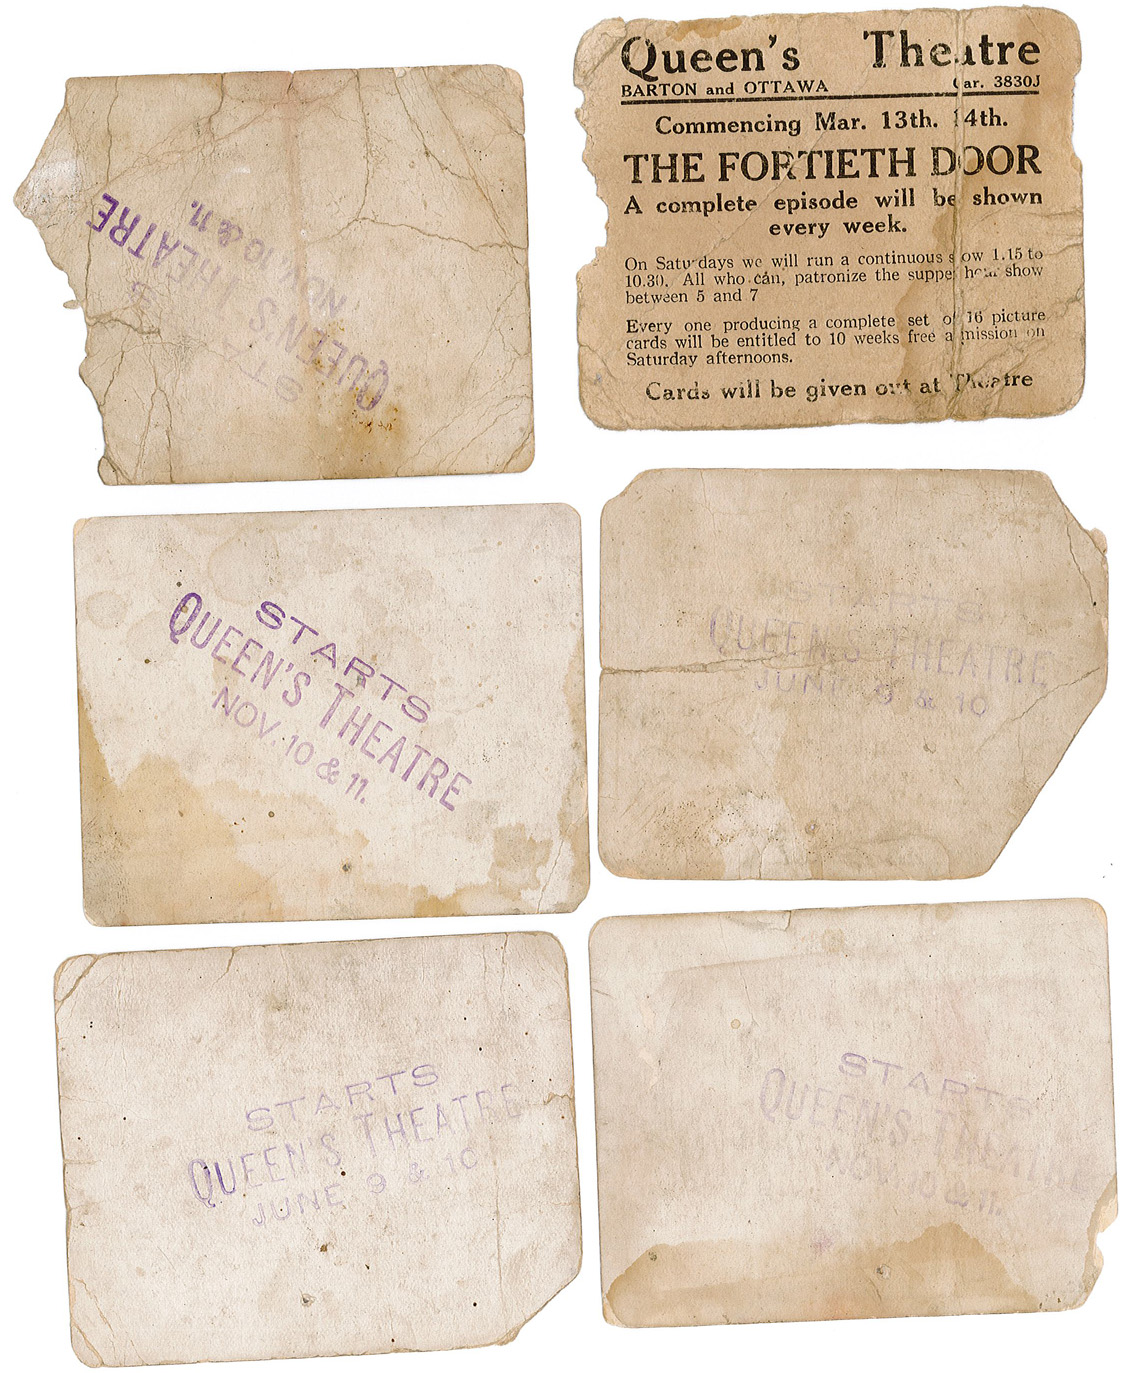 STARTS
QUEEN'S THEATRE
NOV. 10 & 11.
Queen's Theatre
BARTON and OTTAWA Gar. 3830J
Commencing Mar. 13th. 14th.
THE FORTIETH DOOR
A complete episode will be shown
every week.
On Saturdays we will run a continuous show 1.15 to
10.30. All who can, patronize the supper hour show
between 5 and 7
Every one producing a complete set of 16 picture
cards will be entitled to 10 weeks free admission on
Saturday afternoons.
Cards will be given out at Theatre
STARTS
QUEEN'S THEATRE
NOV. 10 & 11.
STARTS
QUEEN'S THEATRE
JUNE 9 & 10
STARTS
QUEEN'S THEATRE
JUNE 9 & 10
STARTS
QUEEN'S THEATRE
NOV. 10 & 11.